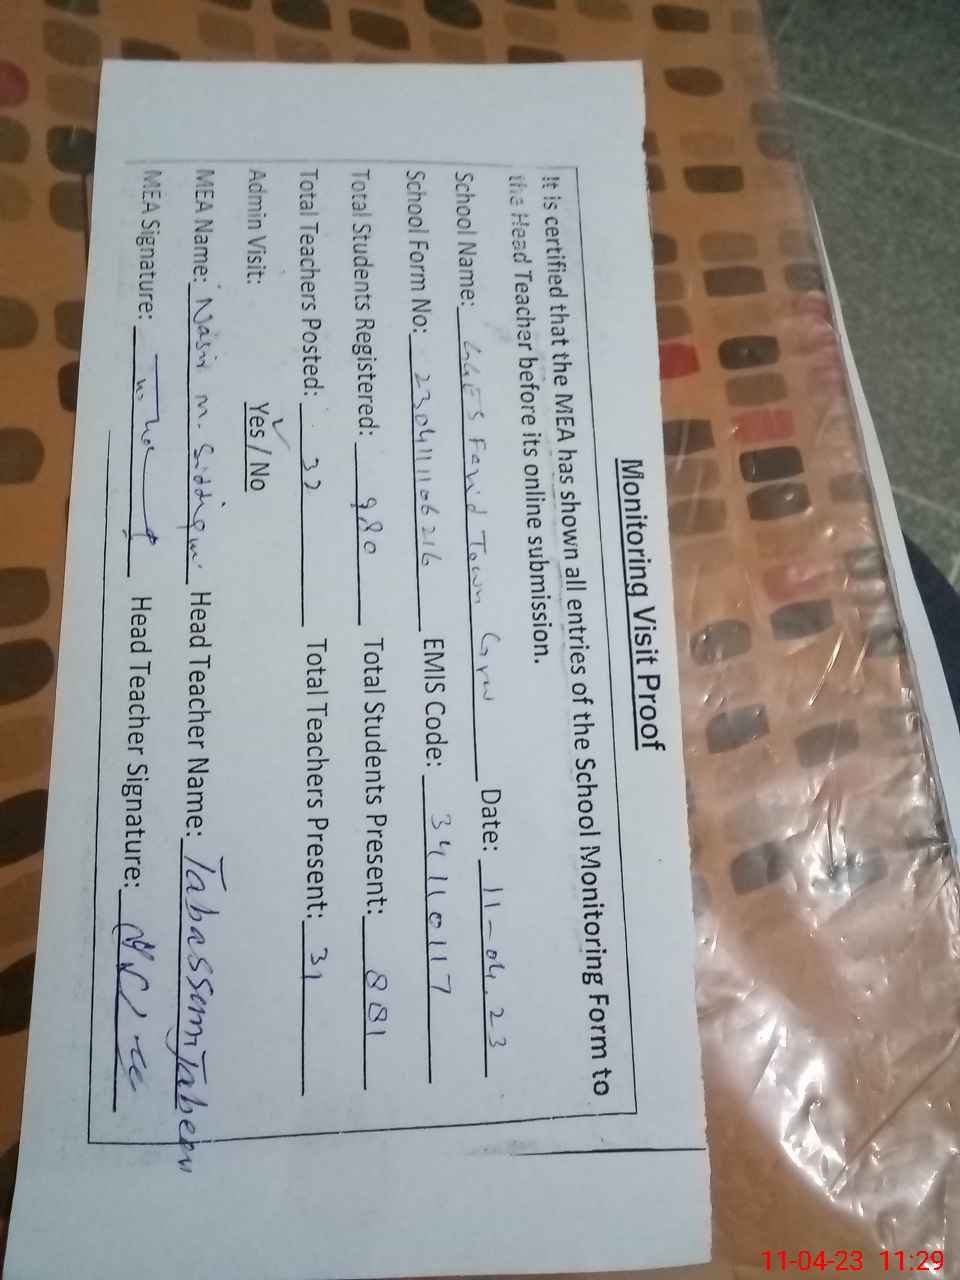 Monitoring Visit Proof
It is certified that the MEA has shown all entries of the School Monitoring Form to
the Head Teacher before its online submission.
School Name: GGES Farid Town Grw Date: 11-04.23
School Form No: 230411106216 EMIS Code: 34110117
Total Students Registered: 980 Total Students Present: 881
Total Teachers Posted: 32 Total Teachers Present: 31
Admin Visit: Yes / No
MEA Name: Nasir M. Siddiqui Head Teacher Name: Tabassum
MEA Signature: Head Teacher Signature:
11-04-23 11:29